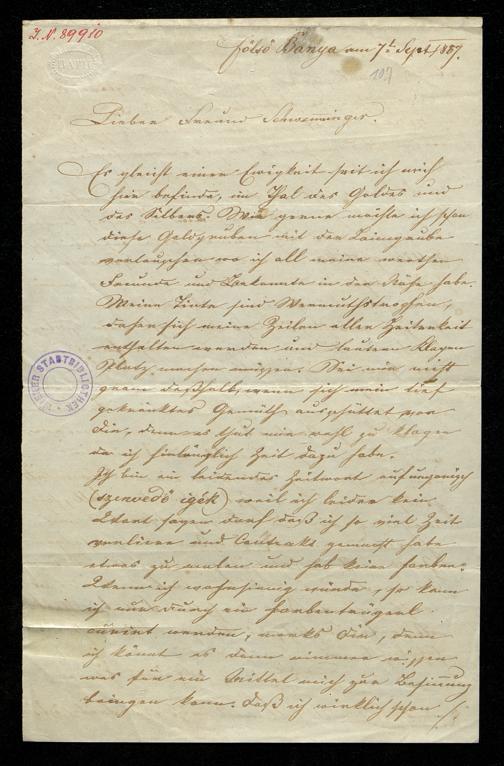 I.N. 89910
BATH
fölsö Bánya am 7t Sept. 1857.
107
Lieber Freund Schwenninger.
Es gleicht einer Ewigkeit seit ich mich
hier befinde, im Thal des Goldes und
des Silbers. Wie gerne möchte ich schon
diese Goldgruben mit der Laimgrube
vertauschen wo ich all meine werthen
Freunde und Bekannte in der Nähe habe.
Meine Tinte sind Wermuthstropfen,
daher sich meine Zeilen aller Heiterkeit
enthalten werden und lautern Klagen
Platz machen müssen. Sei mir nicht
gram deßhalb, wenn sich mein tief
gekränktes Gemüth ausschüttet vor
dir, denn es thut mir wohl zu klagen
da ich hinlänglich Zeit dazu habe.
Ich bin ein leidendes Zeitwort auf ungarisch
(szenvedő igék) weil ich leider kein
Wort sagen darf daß ich so viel Zeit
verliere und Contrakt gemacht habe
etwas zu malen und hab keine Farben.
Wenn ich wahnsinnig würde, so kann
ich nur durch ein Farbentrügerl
curirt werden, merks dir, denn
ich könnt es dann nimmer wissen
was für ein Mittel mich zur Besinnung
bringen kann. Daß ich wirklich schon
WIENER STADTBIBLIOTHEK